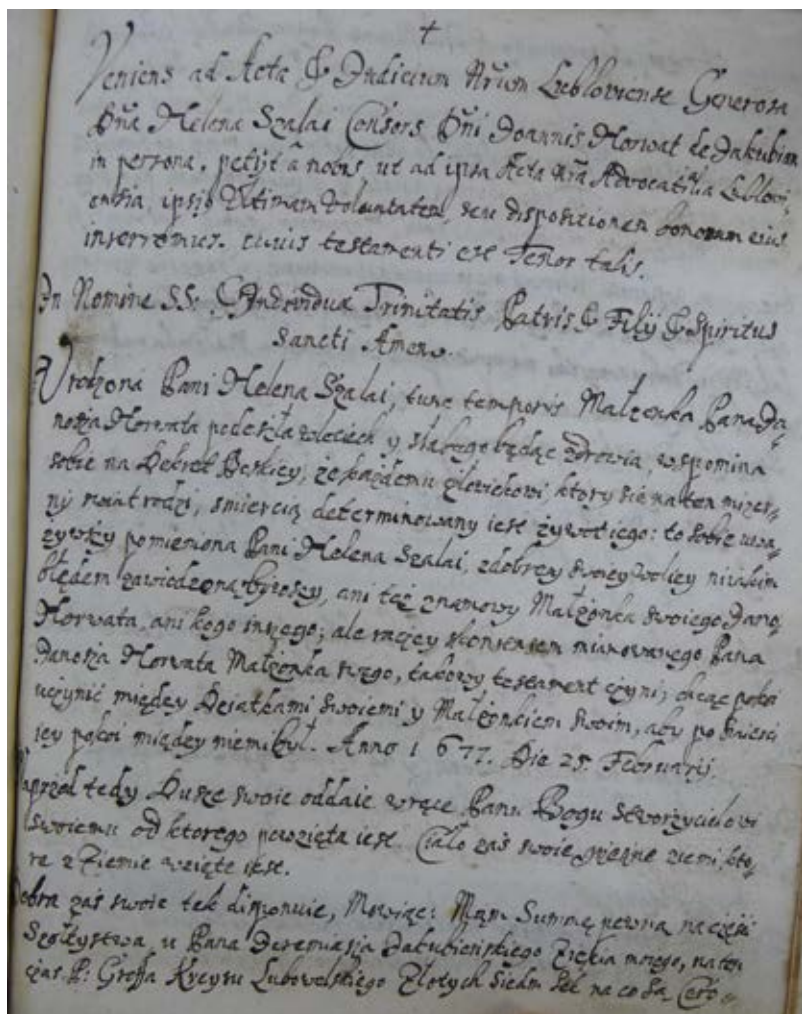 ✝
Veniens ad Acta & Judicium Nrũm Lubloviense Generosa
Dña Helena Szalai Consors Dñi Joannis Horwat de Jakubian
in persona, petijt à nobis, ut ad ipsa Acta nrã Advocatialia Lublovi,
ensia, ipsius Ultimam Voluntatem, seu dispositionem bonorum eius
inserremus. cuius testamenti est Tenor talis.
In Nomine SS. & Individuæ Trinitatis Patris & Filij & Spiritus
Sancti Amen.
Urodzona Pani Helena Szalai, tunc temporis Małżenka Pana Ja,
nosza Horwata podeszła w leciech y słabego będąc zdrowia, wspomina
sobie na Dekret Boskiey, że każdemu człowiekowi ktory sie na ten mizer,
ny swiat rodzi, smiercią determinowany iest żywot iego: to sobie uwa,
żywszy pomieniona Pani Helena Szalai, z dobrey swoiey woliey ni iakim
błędem zawiedzoną bywszy, ani też z namowy Małżonka swoiego Jano,
Horwata, ani kogo inszego; ale raczey s konsensem mianowanego Pana
Janosza Horwata Małżonka swego, takowy testament czyni; chcąc pokoi
uczynić między Dziatkami swoiemi y Małżonkiem swoim, aby po smierci
iey pokoi między niemi był. Anno 1677. Die 25. Februarij.
Naprzod tedy Dusze swoie oddaie w ręce Panu Bogu Stworzycielowi
swoiemu od ktorego powzięta iest. Ciało zaś swoie ziemi, kto,
re z Ziemie wzięte iest.
Dobra zaś swoie tek disponuie, Mowiąc: Mąm Summę pewną na części
Szołtystwa, u Pana Jeremiasza Jakubieńskiego Ziękia moiego, na ten
czas P: Groffa Kreysu Lubowelskiego Złotych siedm set na co są Cero,